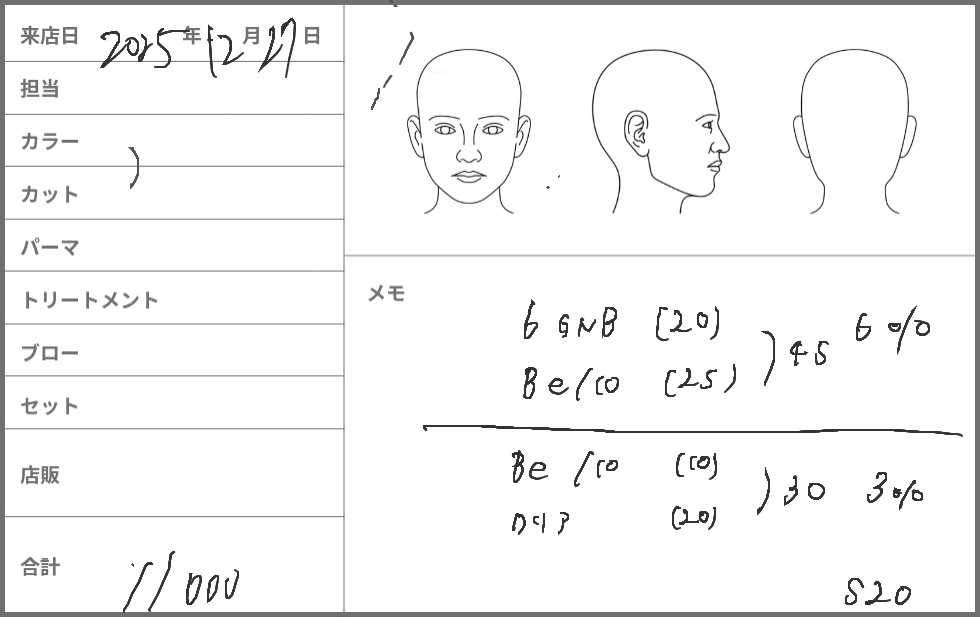 来店日 2025年12月27日
担当
カラー
カット
パーマ
トリートメント
ブロー
セット
店販
合計 11000
メモ
6 GNB (20)
Be/10 (25) ) 45 6%
Be/10 (10)
(20) ) 30 3%
520